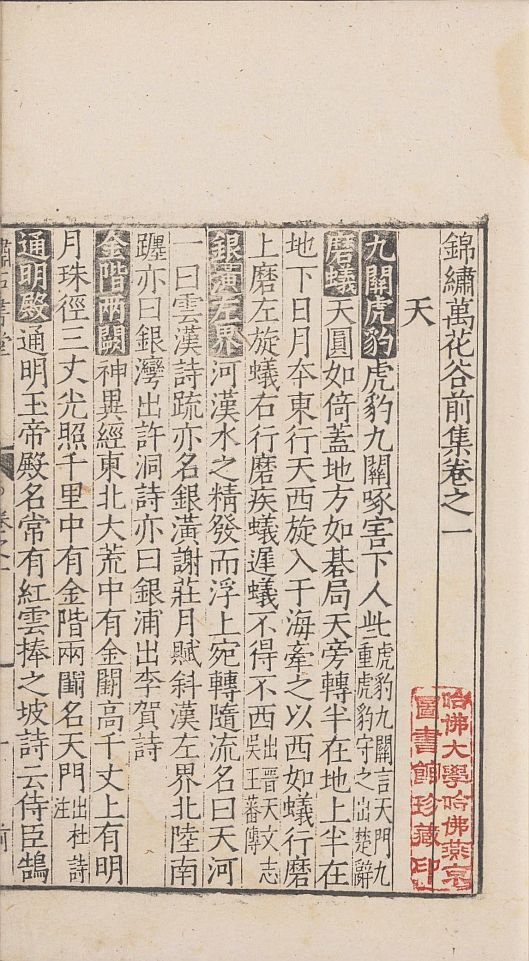 錦繡萬花谷前集卷之一
天
九關虎豹 虎豹九關啄害下人些 虎豹九關言天門九重虎豹守之出楚辭
磨蟻 天圓如倚蓋地方如碁局天旁轉半在地上半在
地下日月本東行天西旋入于海牽之以西如蟻行磨
上磨左旋蟻右行磨疾蟻遲蟻不得不西 出晉天文志吳王蕃傳
銀潢左界 河漢水之精發而浮上宛轉隨流名曰天河
一曰雲漢詩疏亦名銀潢謝莊月賦斜漢左界北陸南
躔亦曰銀灣出許洞詩亦曰銀浦出李賀詩
金階兩闕 神異經東北大荒中有金闕高千丈上有明
月珠徑三丈光照千里中有金階兩闕名天門 出杜詩注
通明殿 通明玉帝殿名常有紅雲捧之坡詩云侍臣鵠
哈佛大學哈佛燕京
圖書館珍藏印